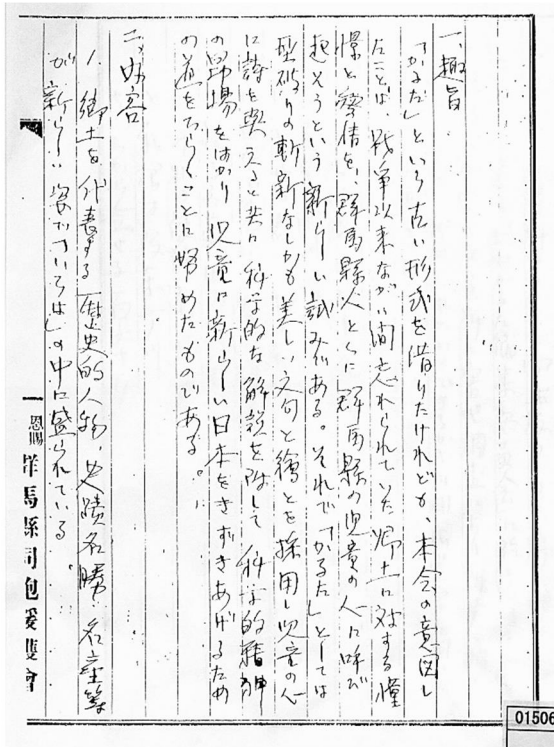 一、趣旨
「かるた」という古い形式を借りたけれども、本会の意図し
たことは、戦争以来ながい間忘れられていた郷土に対する憧
憬と愛情を、群馬縣人とくに群馬縣の児童の人に呼び
起そうという新らしい試みである。それで「かるた」としては
型破りの斬新なしかも美しい文句と繪とを採用し児童の心
に詩を與えると共に科学的な解説を附して科学的精神
の昂揚をはかり児童に新らしい日本をきずきあげるため
の道をひらくことに努めたものである。
二、内容
1. 郷土を代表する歴史的人物、史蹟名勝、名産等
が新らしい姿で「いろは」の中に盛られている。
恩賜
群馬縣同胞援護會
01506